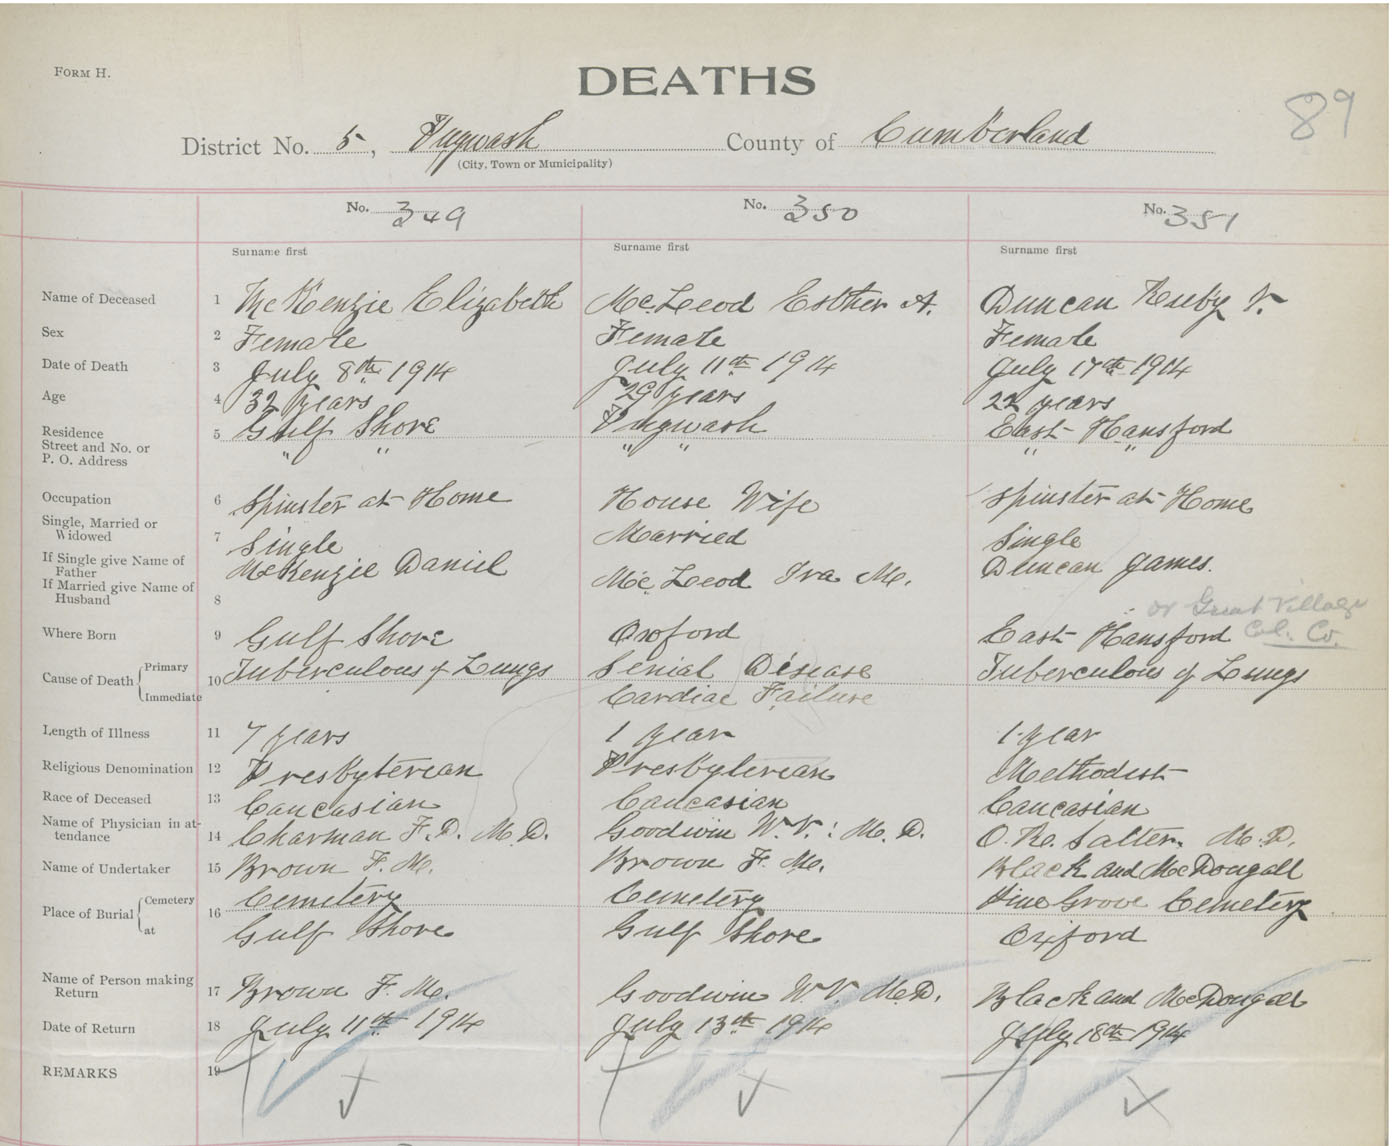 FORM H.
DEATHS
89
District No. 5, Pugwash County of Cumberland
(City, Town or Municipality)
No. 349 No. 350 No. 351
Surname first Surname first Surname first
Name of Deceased 1 McKenzie Elizabeth McLeod Esther A. Duncan Ruby V.
Sex 2 Female Female Female
Date of Death 3 July 8th 1914 July 11th 1914 July 17th 1914
Age 4 32 years 29 years 22 years
Residence 5 Gulf Shore Pugwash East Hansford
Street and No. or " " " " " "
P. O. Address
Occupation 6 Spinster at Home House Wife Spinster at Home
Single, Married or
Widowed 7 Single Married Single
If Single give Name of
Father McKenzie Daniel McLeod Ira M. Duncan James.
If Married give Name of
Husband 8
or Great Village
Col. Co.
Where Born 9 Gulf Shore Oxford East Hansford
Cause of Death Primary 10 Tuberculous of Lungs Disease Tuberculous of Lungs
Immediate Cardiac Failure
Length of Illness 11 7 years 1 year 1 year
Religious Denomination 12 Presbyterian Presbyterian Methodist
Race of Deceased 13 Caucasian Caucasian Caucasian
Name of Physician in at-
tendance 14 Charman F. D. M. D. Goodwin W. V. : M. D. O. R. Salter. M. D.
Name of Undertaker 15 Brown F. M. Brown F. M. Black and McDougall
Place of Burial Cemetery 16 Cemetery Cemetery Pine Grove Cemetery
at Gulf Shore Gulf Shore Oxford
Name of Person making
Return 17 Brown F. M. Goodwin W. V. M. D. Black and McDougall
Date of Return 18 July 11th 1914 July 13th 1914 July 18th 1914
REMARKS 19